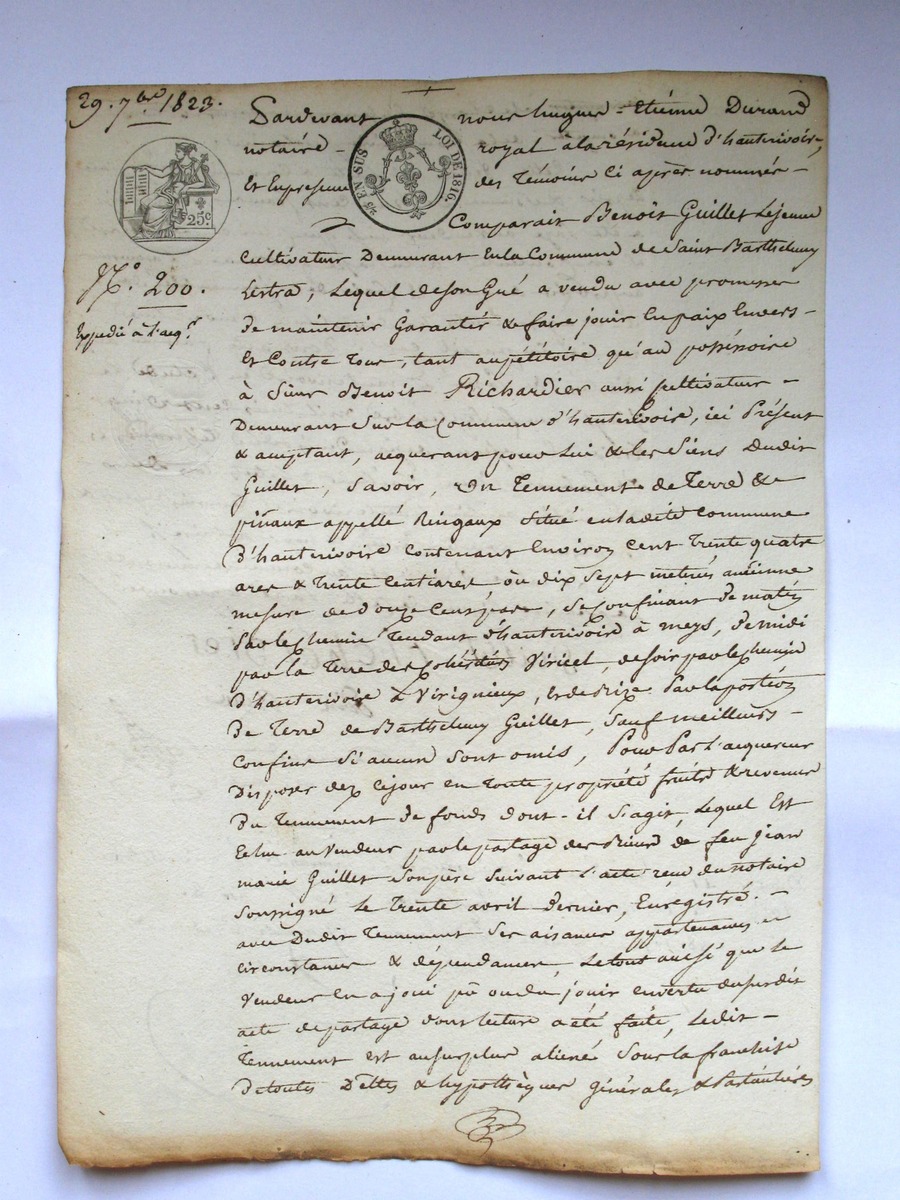 29. 7bre 1823.
Pardevant nous hugues - Etiénne Durand
notaire - royal à la résidence d'hauterivoire,
Et En presence des Témoins Ci après nommés -
25 EN SUS LOI DE 1816.
25c.
Comparait Benoît Guillet Lejeune
Cultivateur Demeurant En la Commune de Saint Barthelemy
Lestra, Lequel de son Gré a vendu avec promesse
N.o 200.
De maintenir Garantir & faire jouir En paix Envers -
Expedié à l'acq.r
Et Contre Tous, tant au pétitoire qu'au possessoire
à Sieur Benoît Richardier aussi Cultivateur -
Demeurant Sur la Commune d'hauterivoire, ici Présent
& acceptant, acquerant pour Lui & les Siens Dudit
Guillet, Savoir, Un Tennement de Terre &
pinaux appellé Ringaux Situé en ladite Commune
D'hauterivoire Contenant Environ Cent Trente quatre
ares & Trente Centiares, ou dix Sept metrés anciénne
mesure de Douze Cens pas, Se Confinant De matin
Par le Chemin Tendant d'hauterivoire à meys, De midi
par la Terre des Viricel, de Soir par le Chemin
D'hauterivoire à Virignieux, Et de bize Par la portion
De Terre de Barthelemy Guillet, Sauf meilleurs -
Confins Si aucuns Sont omis, Pour Par L'acquereur
Disposer dez Cejour en Toute propriété fruits & revenus
Du Tennement de fonds dont - il S'agit, Lequel Est
Echu au Vendeur par le partage des Biens de feu Jean
marie Guillet Son père Suivant L'acte reçu du notaire
Soussigné Le Trente avril Dernier, Enrégistré. -
avec Dudit Tennement Ses aisances appartenances
Circonstances & dépendances, Le tout aussi que Le
Vendeur En a joui pû ou du jouir en vertu du susdit
acte de partage dont lecture a été faite, Ledit -
Tennement est au surplus aliéné Sous la franchise
De toutes Dettes & hypothèques Générales & Particulières